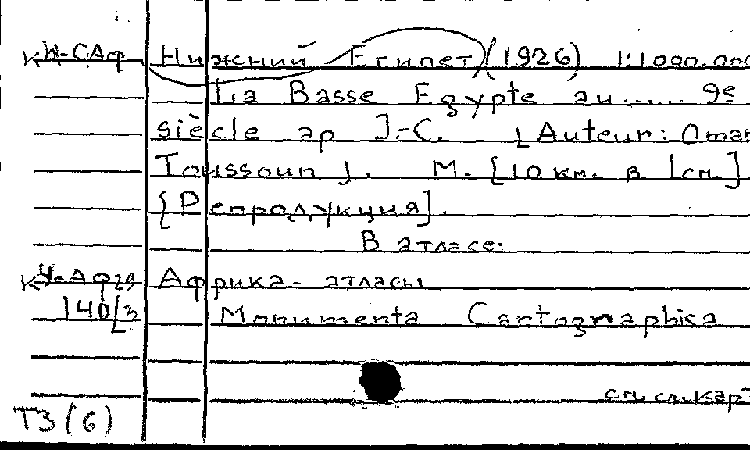 Нижний Египет (1926) 1:1000.000
La Basse Egypte au..... 9e
siècle ap J-C. [Auteur: Omar
Toussoun]. М. [10 км. в 1см.]
[Репродукция].
В атласе:
Африка - атласы
140/3 Monumenta Cartographica
см. сл. кар
T3(6)